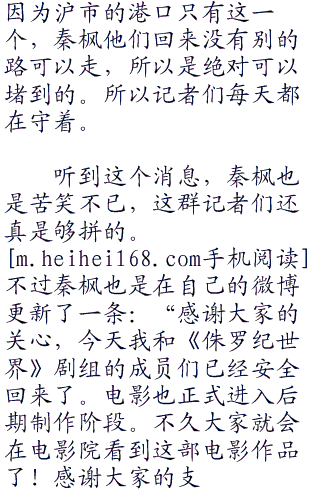 因为沪市的港口只有这一
个，秦枫他们回来没有别的
路可以走，所以是绝对可以
堵到的。所以记者们每天都
在守着。
听到这个消息，秦枫也
是苦笑不已，这群记者们还
真是够拼的。
[m.heihei168.com手机阅读]
不过秦枫也是在自己的微博
更新了一条：“感谢大家的
关心，今天我和《侏罗纪世
界》剧组的成员们已经安全
回来了。电影也正式进入后
期制作阶段。不久大家就会
在电影院看到这部电影作品
了！感谢大家的支